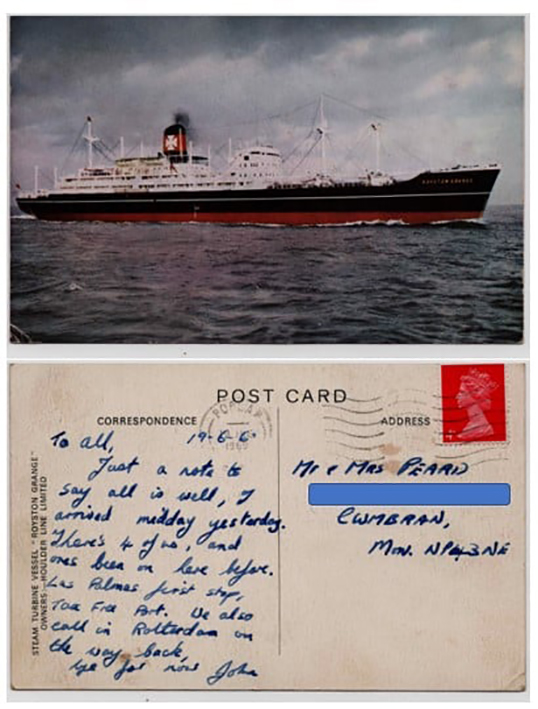 ROYSTON GRANGE
POST CARD
CORRESPONDENCE
ADDRESS
POPLAR
1969
To all,
19-6-6
Just a note to
say all is well, I
arrived midday yesterday.
There's 4 of us, and
ones been on here before.
Las Palmas first stop,
Tax Free Port. We also
call in Rotterdam on
the way back,
bye for now John
Mr & Mrs PEARD
CWMBRAN,
MON.
STEAM TURBINE VESSEL "ROYSTON GRANGE"
OWNERS :- HOULDER LINE LIMITED